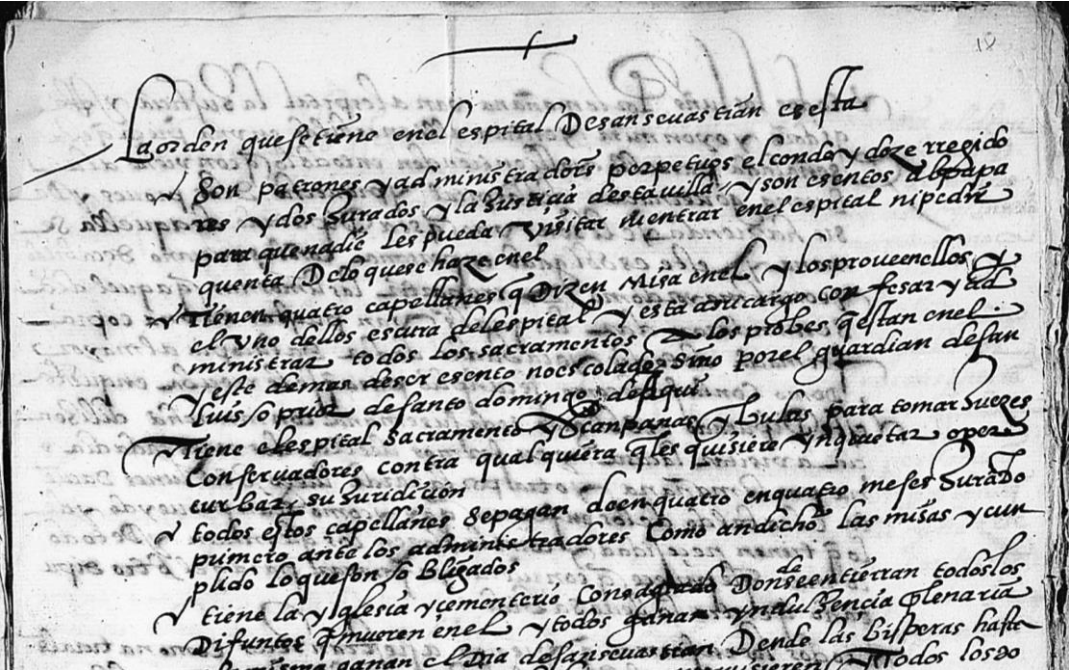 18
La orden que se tiene en el espital De san sevastian es esta
Son patrones y administradores perpetuos el conde y doze rregido
res y dos Jurados y la Justicia desta villa y son esentos al papa
para que nadie les pueda visitar ni entrar en el espital ni pedir
quenta De lo que se haze en el
Tienen quatro capellanes q Dizen misa en el y los proveen ellos y
el vno dellos es cura del espital y esta a su cargo confesar y ad
ministrar todos los sacramentos a los probes q estan en el
y este demas de ser esento no es colador sino por el guardian de san
luis o prior de santo domingo de aqui
Tiene el espital sacramento y canpanas y bulas para tomar Juezes
Conservadores contra qualquiera q les quisiere ynquietar o per
turbar su Juridicion
todos estos capellanes se pagan de en quatro en quatro meses Jurado
primero ante los administradores Como an dicho las misas y cun
plido lo que son obligados
tiene la yglesia y cementerio Consagrado Donde se entierran todos los
Difuntos q mueren en el y todos ganan yndulgencia plenaria
misma ganan el Dia de san sevastian Dende las bisperas hasta
Todos los